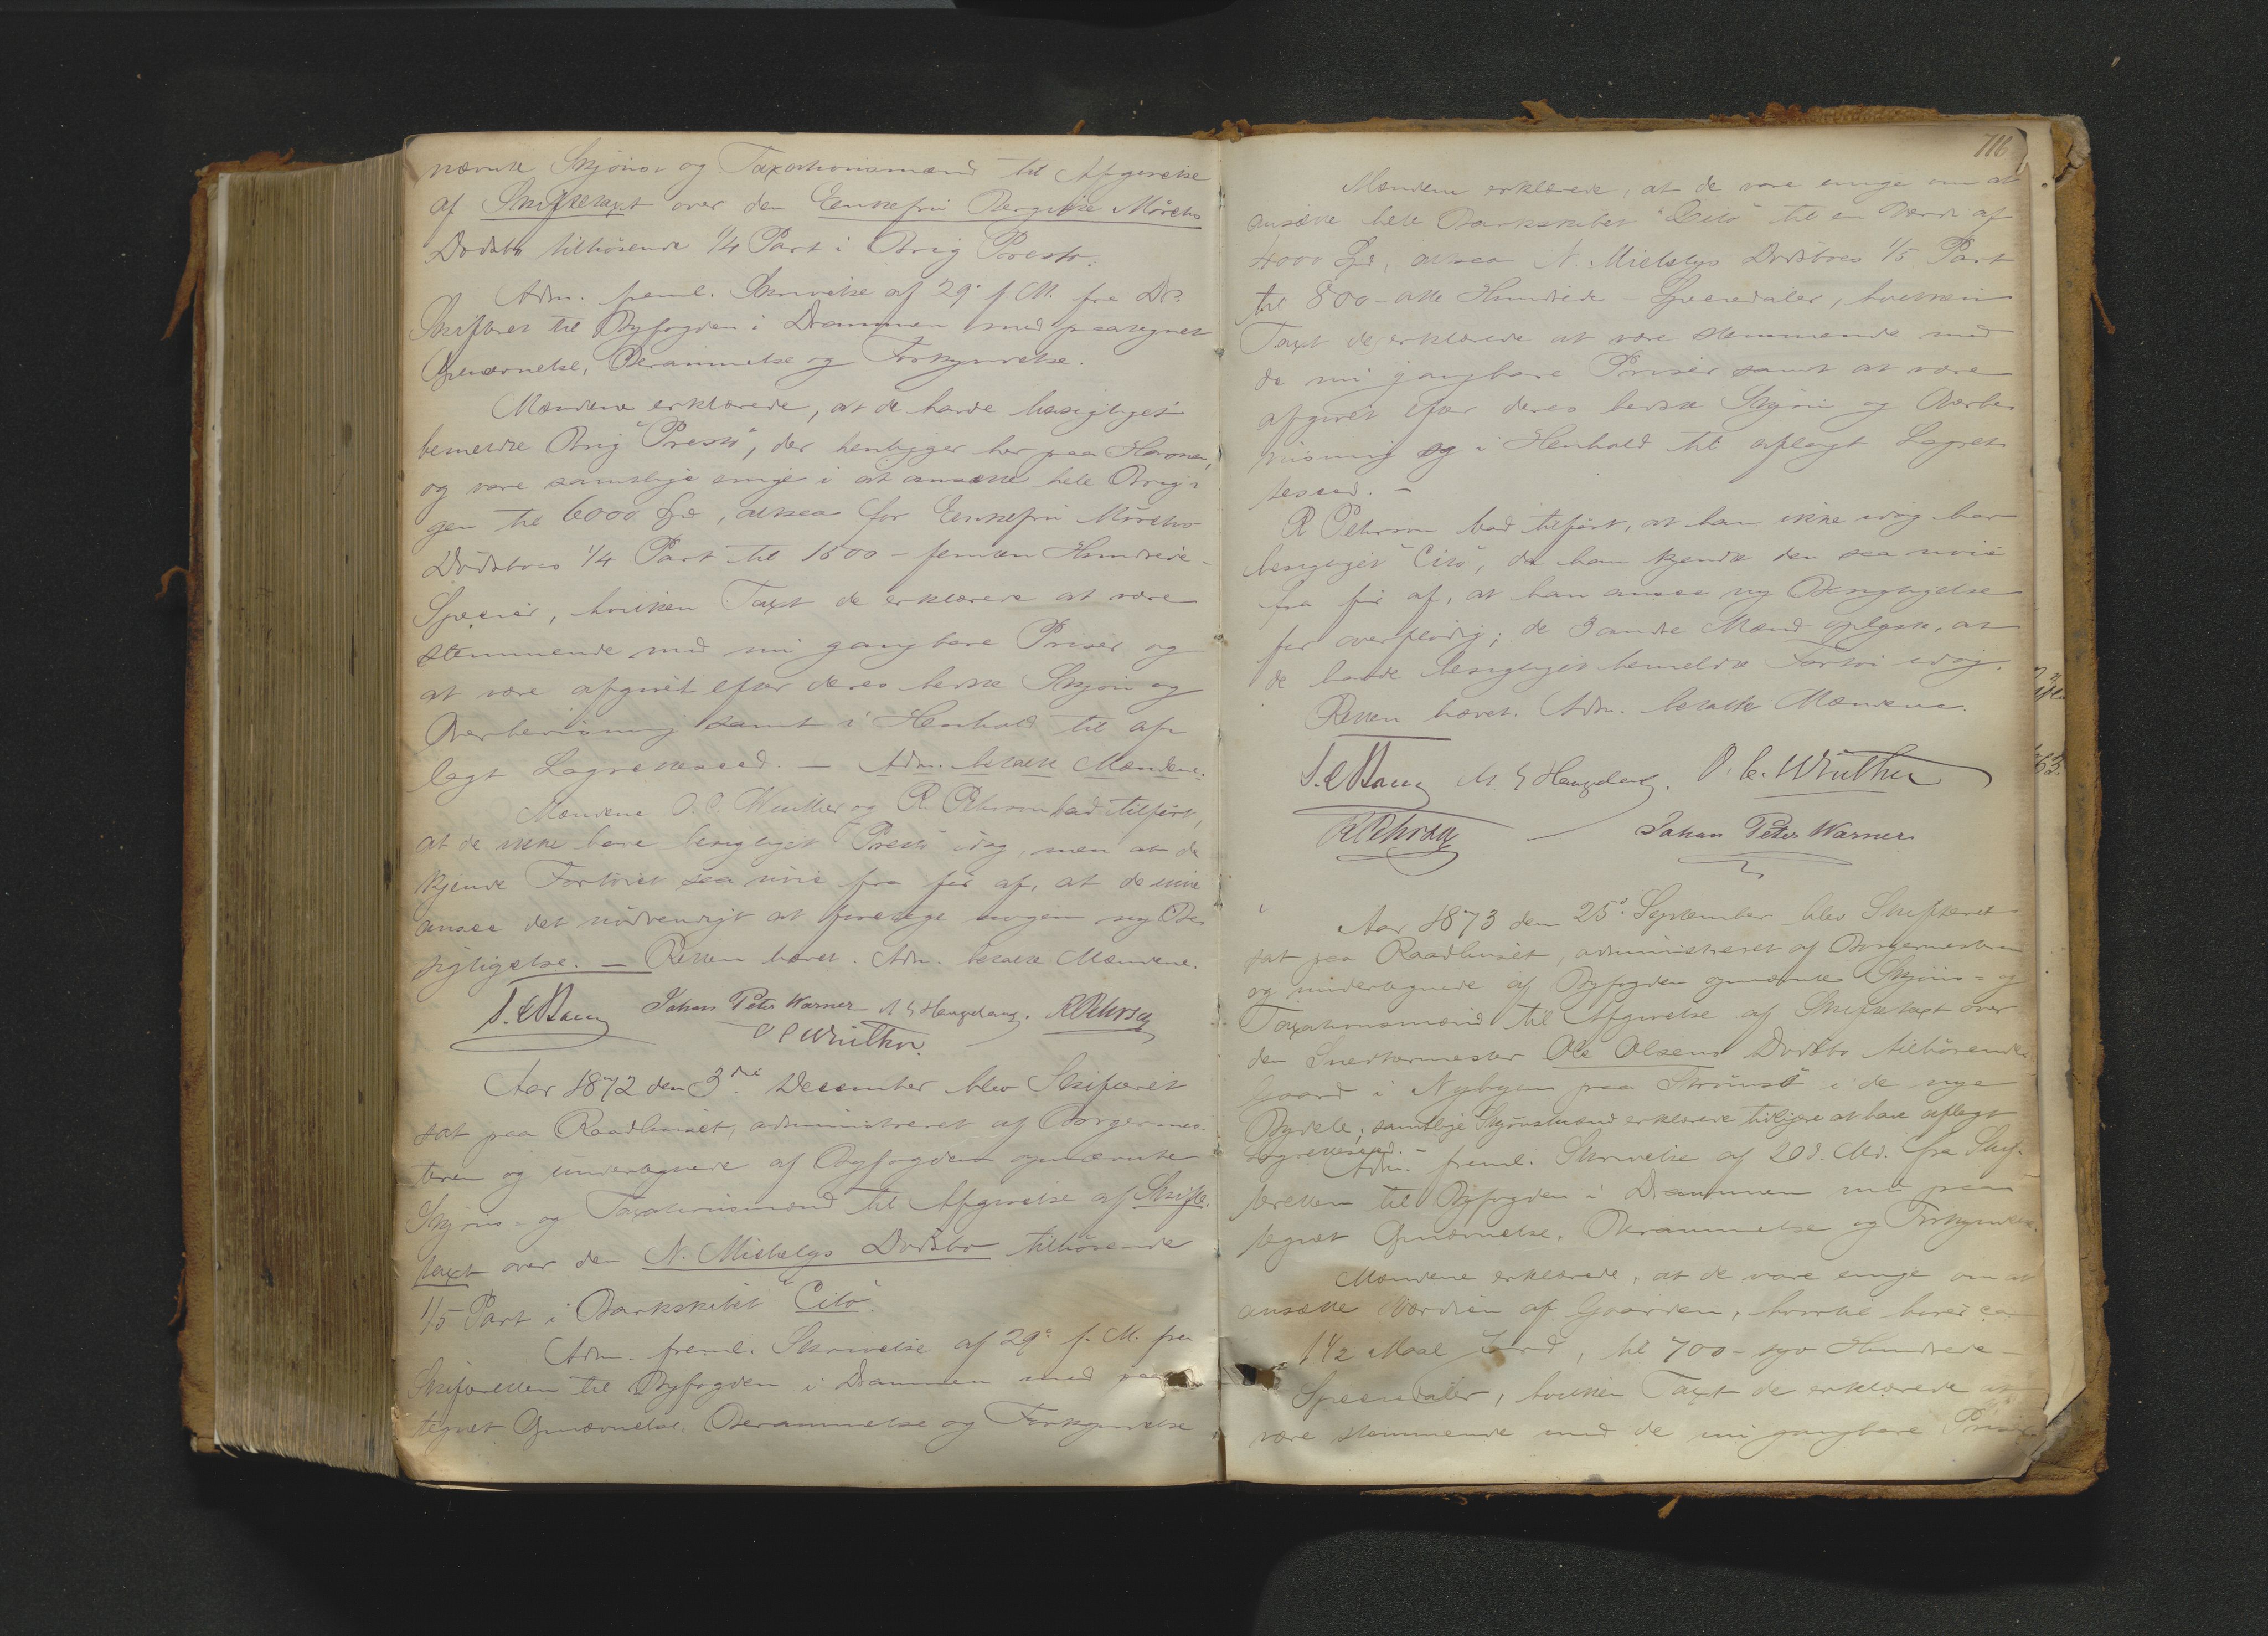 nævnte Skjøns- og Taxationsmænd til Afgivelse
af Skiftetaxt over den Enkefru Bergitte Mörchs
Dödsbo tilhörende 1/4 Part i Brig Presto.
Adm. freml. Skrivelse af 29. f. M. fra Dr.
Skifteret til Byfogden i Drammen med paategnet
Opnævnelse, Berammelse og Forkyndelse.
Mændene erklærede, at de havde besigtiget
bemeldte Brig "Presto", der henligger her paa Havnen,
og vare samtlige enige i at ansætte hele Brig-
gen til 6000 Spd, altsaa for Enkefru Mörchs
Dödsboes 1/4 Part til 1500 - femten Hundrede -
Specier, hvilken Taxt de erklærede at være
stemmende med nu gangbare Priser og
at være afgivet efter deres bedste Skjön og
Overbeviisning samt i Henhold til af-
lagt Lagretteseed. - Adm. betalte Mændene.
Mændene O. C. Winther og R. Pehrson bad tilfört,
at de ikke have besigtiget Presto idag, men at de
kjende Fartöiet saa nöie fra för af, at de ikke
ansee det nödvendigt at foretage nogen ny Be-
sigtigelse. - Retten hævet. Adm. betalte Mændene.
Johan Peter Warner M G Haugdang. R Pehrson
O C Winther.
Aar 1872 den 3die December blev Skifteret
sat paa Raadhuset, administreret af Borgermes-
teren og undertegnede af Byfogden opnævnte
Skjöns- og Taxationsmænd til Afgivelse af Skifte-
taxt over den N. Mielelys Dödsbo tilhörende
1/5 Part i Barkskibet "Cito".
Adm. freml. Skrivelse af 29. f. M. fra
Skifteretten til Byfogden i Drammen med paa-
tegnet Opnævnelse, Berammelse og Forkyndelse
716
Mændene erklærede, at de vare enige om at
ansætte hele Barkskibet "Cito" til en Værdi af
4000 Spd, altsaa N. Mielelys Dödsboes 1/5 Part
til 800 - otte Hundrede - Speciedaler, hvilken
Taxt de erklærede at være stemmende med
de nu gangbare Priser samt at være
afgivet efter deres bedste Skjön og Overbe-
viisning og i Henhold til aflagt Lagret-
teseed. -
R Pehrson bad tilfört, at han ikke idag har
besigtiget "Cito", da han kjendte den saa nöie
fra för af, at han ansaa ny Besigtigelse
for overflödig; de 3 andre Mænd oplyste, at
de havde besigtiget bemeldte Fartöi idag.
Retten hævet. Adm. betalte Mændene.
M G Haugdang. O. C. Winther
R Pehrson Johan Peter Warner
Aar 1873 den 25. September blev Skifteret
sat paa Raadhuset, administreret af Borgermesteren
og undertegnede af Byfogden opnævnte Skjöns- og
Taxationsmænd til Afgivelse af Skiftetaxt over
den Snedkermester Ole Olsens Dödsbo tilhörende
Gaard i Nybyen paa Strömsö i de nye
Bydele; samtlige Skjönsmænd erklærede tidligere at have aflagt
Lagretteseed. -
Adm. freml. Skrivelse af 20 d. Md. fra Skif-
teretten til Byfogden i Drammen med paa-
tegnet Opnævnelse, Berammelse og Forkyndelse.
Mændene erklærede, at de vare enige om at
ansætte Værdien af Gaarden, hvortil hörer ca
1 1/2 Maal Jord, til 700 - syv Hundrede -
Speciedaler, hvilken Taxt de erklærede at
være stemmende med de nu gangbare Priser